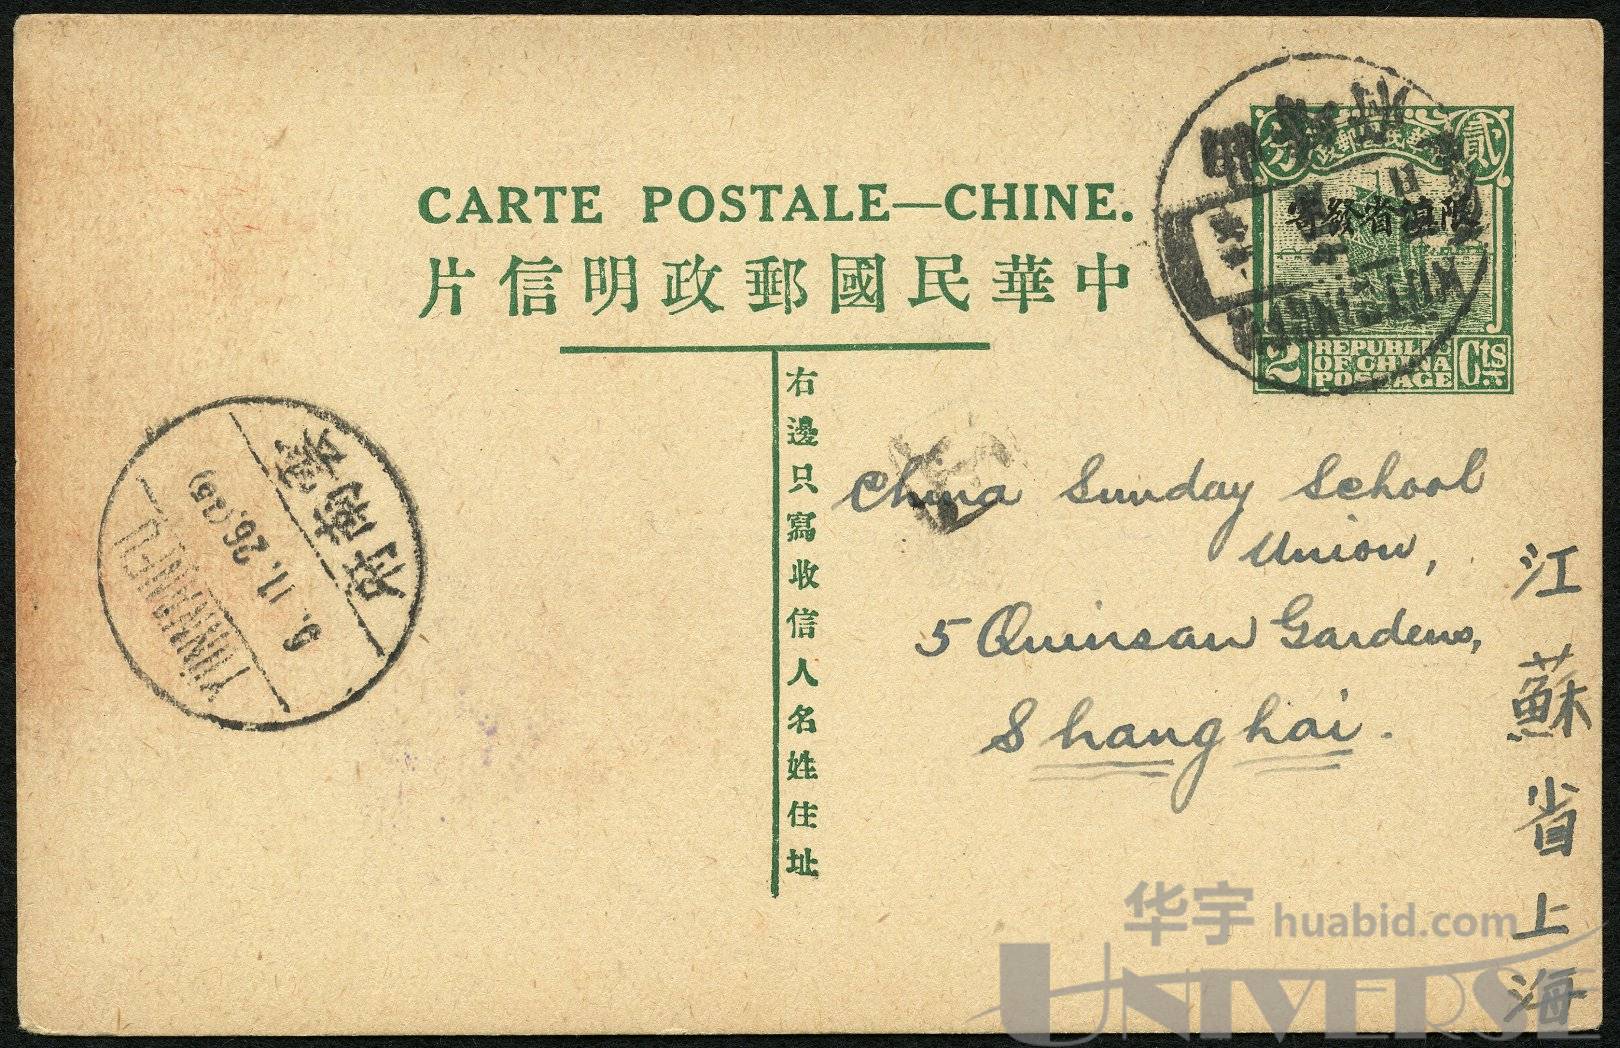 CARTE POSTALE—CHINE.
片信明政郵國民華中
貳
分
政郵國民華中
寄發省滇限
KUTSINGFU
2
REPUBLIC
OF CHINA
POSTAGE
Cts.
右邊只寫收信人名姓住址
China Sunday School
Union,
5 Quinsan Gardens,
Shanghai.
江蘇省上海
雲南府
6.11.26.
YÜNNANFU
华宇 huabid.com
UNIVERSE